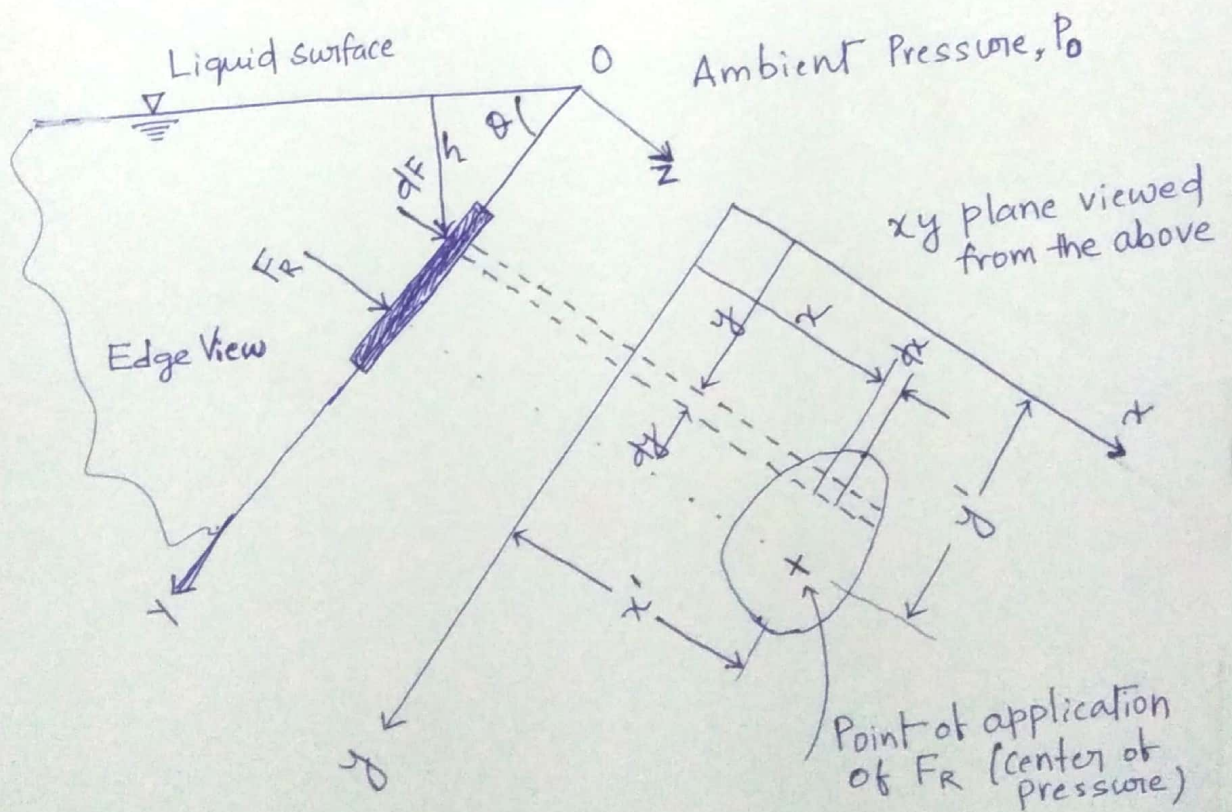 Liquid surface
O
Ambient Pressure, P₀
θ
h
dF
z
F_R
Edge View
y
xy plane viewed
from the above
y
x
dx
dy
x
y'
x'
x
y
Point of application
of F_R (center of
pressure)